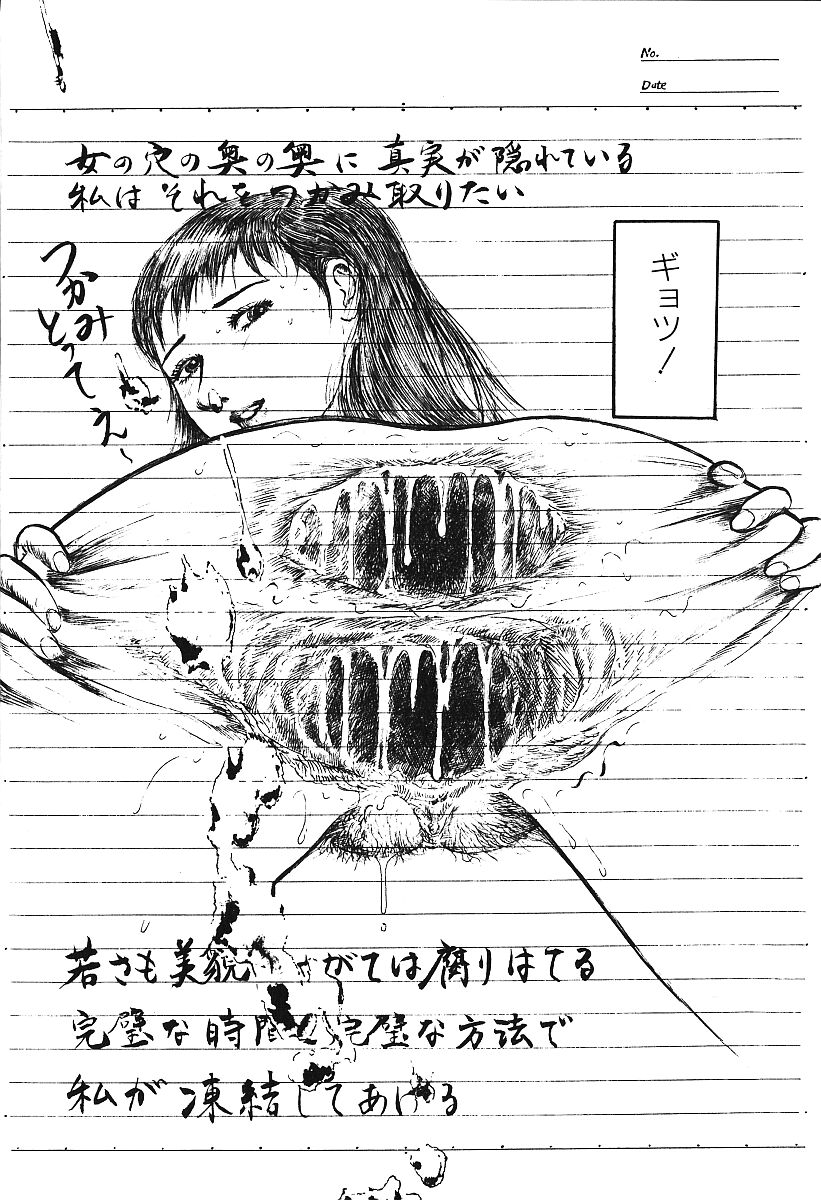 No.
Date
女の穴の奥の奥に 真実が隠れている
私はそれをつかみ取りたい
ギョツ！
つかみ
とってえ〜
若さも美貌 がては腐りはてる
完璧な時間 完璧な方法で
私が凍結してあげる